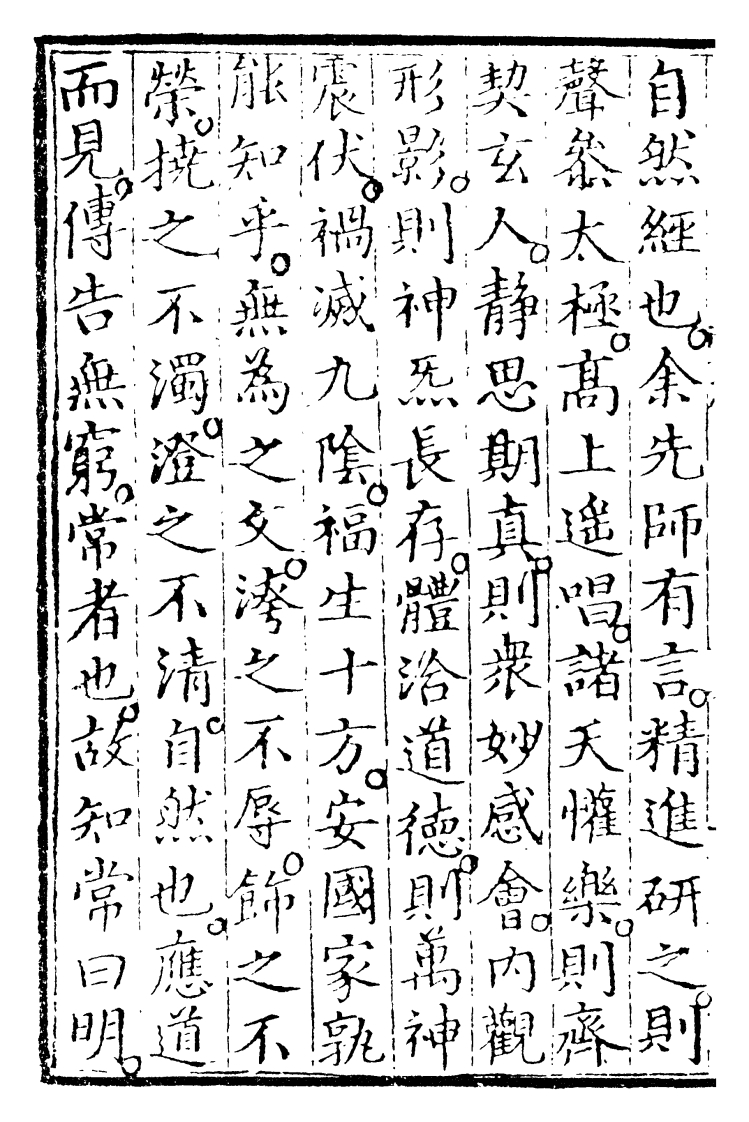 自然經也。余先師有言。精進研之。則
聲叅太極。髙上遥唱。諸天懽樂。則齊
契玄人。静思期真。則衆妙感會。内觀
形影。則神炁長存。體洽道德。則萬神
震伏。禍滅九陰。福生十方。安國家孰
能知乎。無為之文。滂之不辱。飾之不
榮。撓之不濁。澄之不清。自然也。應道
而見。傳告無窮。常者也。故知常曰明。